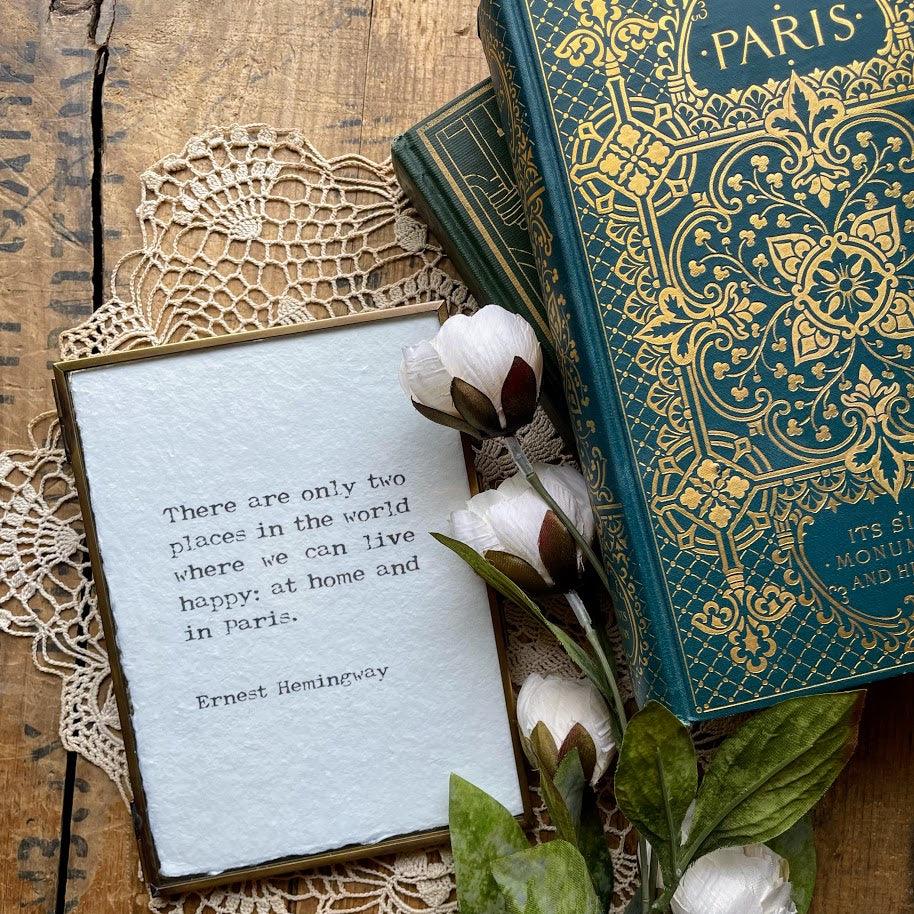 ·PARIS·
There are only two
places in the world
where we can live
happy: at home and
in Paris.
Ernest Hemingway
ITS
AND